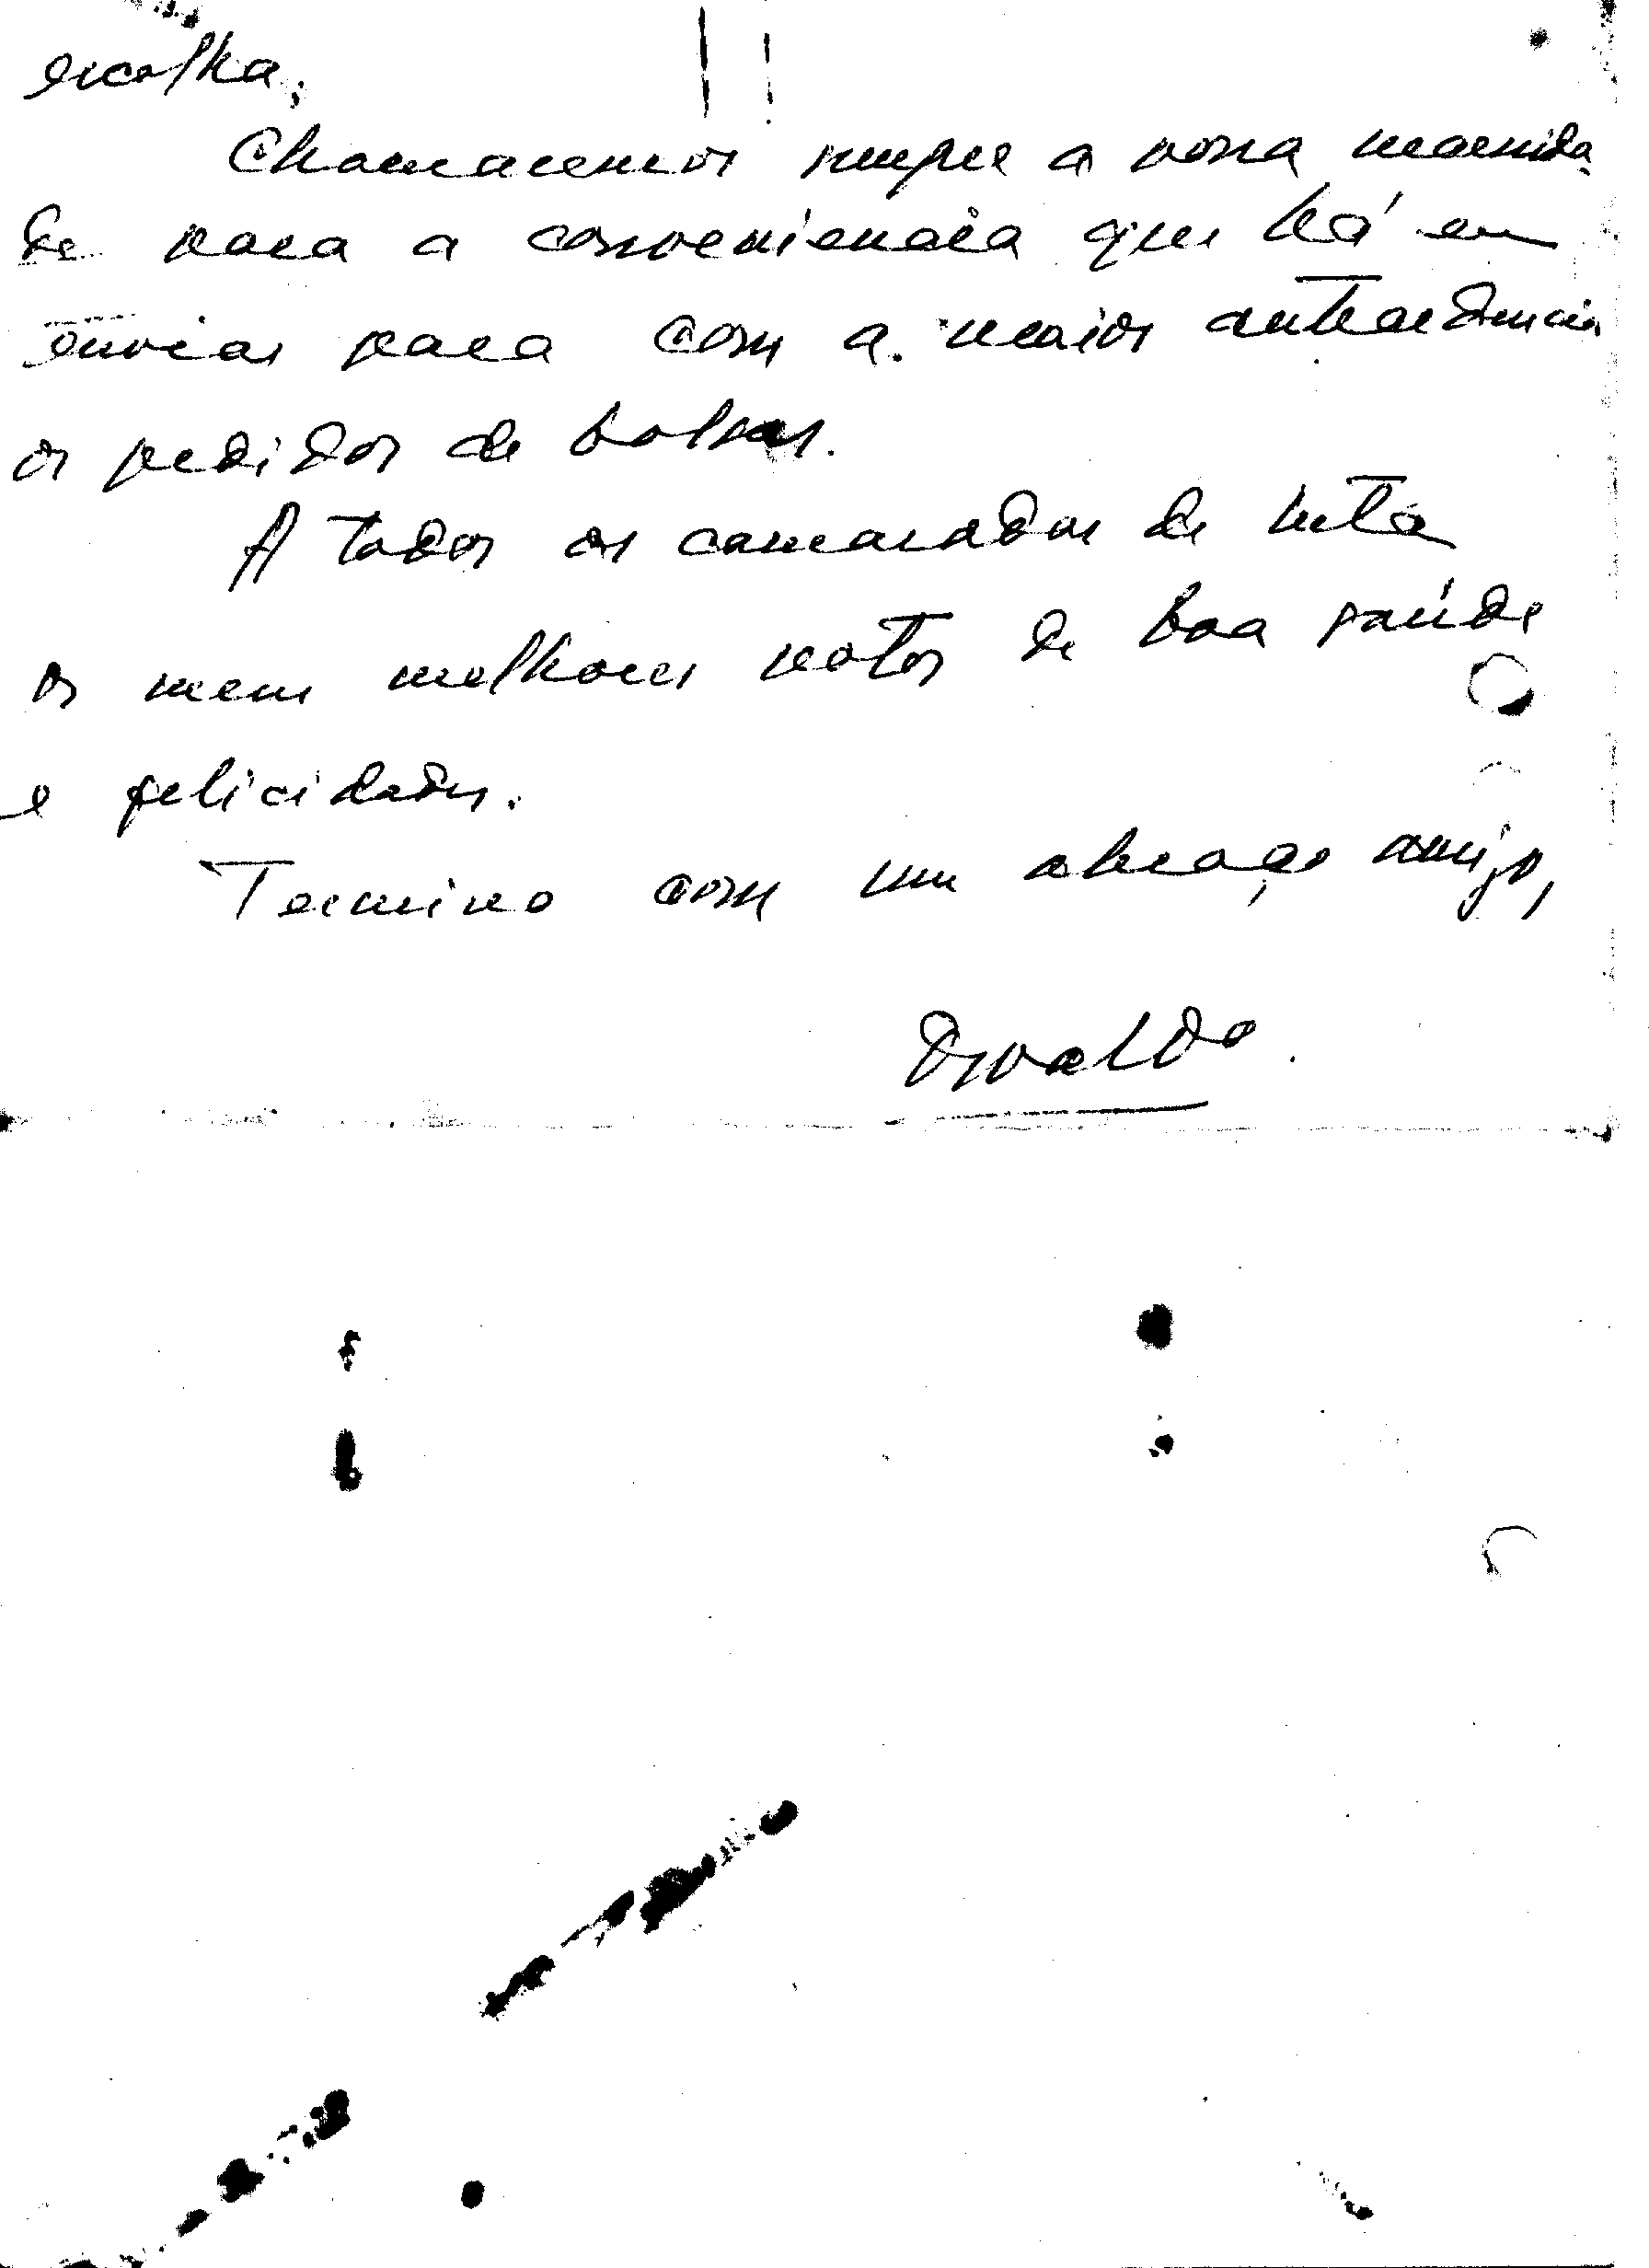 escolha.
Chamaremos sempre a vossa
de para a conveniencia que há em
enviar para com a maior antecedencia
os pedidos de bolsas.
A todos os camaradas de luta
os meus melhores votos de boa saúde
e felicidades.
Termino com um abraço amigo,
Osvaldo